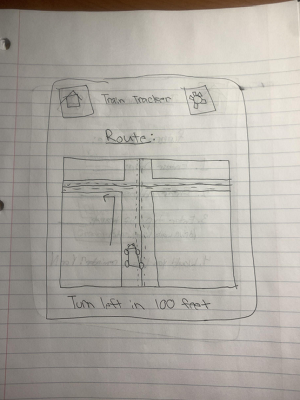 Train Tracker
Route:
Turn left in 100 feet